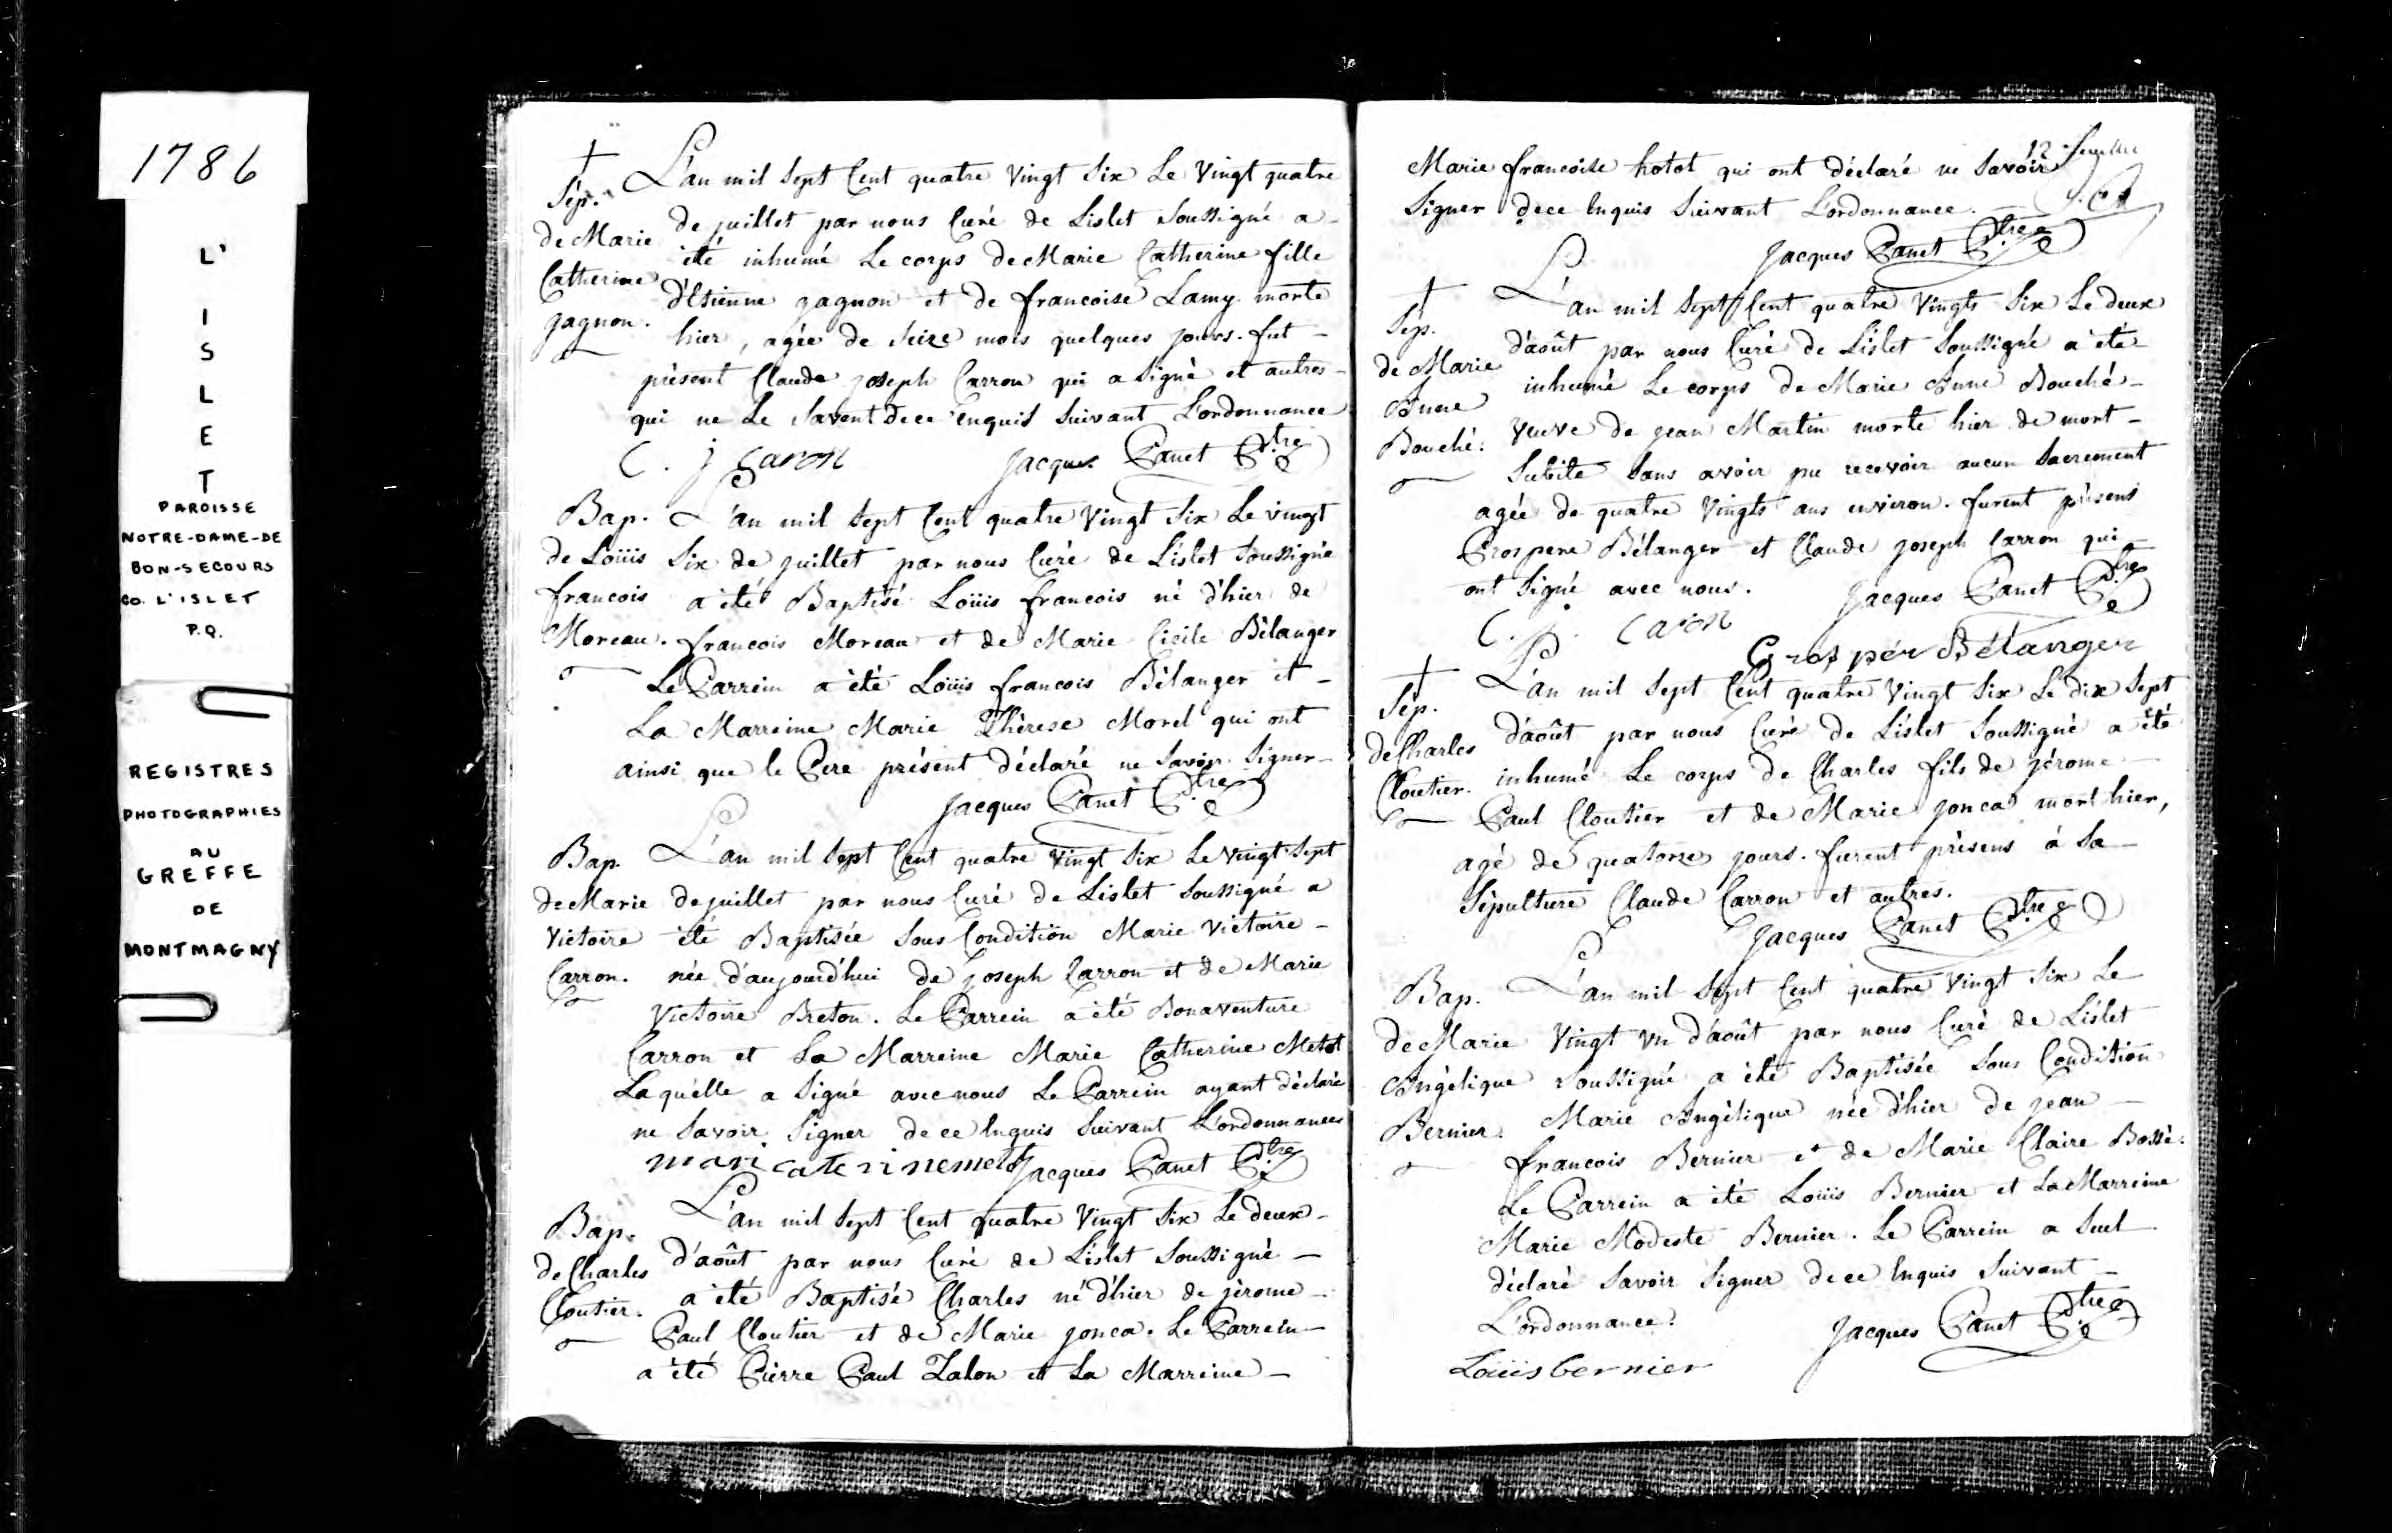 1786
L'
I
S
L
E
T
PAROISSE
NOTRE-DAME-DE
BON-SECOURS
CO. L'ISLET
P.Q.
REGISTRES
PHOTOGRAPHIES
AU
GREFFE
DE
MONTMAGNY
Sép.
de Marie
Catherine
gagnon.
L'an mil Sept Cent quatre Vingt Six Le Vingt quatre
de juillet par nous Curé de Lislet Soussigné a
été inhumé Le corps de Marie Catherine fille
d'Etienne gagnon et de francoise Lamy morte
hier, agée de Seize mois quelques jours. fut
présent Claude joseph Carron qui a Signé et autres
qui ne Le Savent de ce enquis Suivant L'ordonnance
C. j Caron Jacques Panet Ptre
Bap.
de Loüis
francois
Moreau.
L'an mil Sept Cent quatre Vingt Six Le vingt
Six de juillet par nous Curé de Lislet Soussigné
a été Baptisé Loüis francois né d'hier de
francois Moreau et de Marie Cicile Bélanger
Le Parrein a été Loüis francois Bélanger et
La Marreine Marie Thérese Morel qui ont
ainsi que le Pere présent déclaré ne Savoir Signer
Jacques Panet Ptre
Bap.
de Marie
Victoire
Carron.
L'an mil Sept Cent quatre Vingt Six Le Vingt Sept
de juillet par nous Curé de Lislet Soussigné a
été Baptisée Sous Condition Marie Victoire
née d'aujourd'hui de joseph Carron et de Marie
Victoire Breton. Le Parrein a été Bonaventure
Carron et La Marreine Marie Catherine Metot
Laquelle a Signé avec nous Le Parrein ayant déclaré
ne Savoir Signer de ce Enquis Suivant L'ordonnance
mari caterinemetot Jacques Panet Ptre
Bap.
de Charles
Cloutier.
L'an mil Sept Cent quatre Vingt Six Le deux
d'août par nous Curé de Lislet Soussigné
a été Baptisé Charles né d'hier de jérome
Paul Cloutier et de Marie jonca. Le Parrein
a été Pierre Paul Talon et La Marreine
12
Marie francoise hotot qui ont déclaré ne Savoir
Signer de ce Enquis Suivant L'ordonnance.
Jacques Panet Ptre
Sép.
de Marie
Anne
Bouché.
L'an mil Sept Cent quatre Vingts Six Le deux
d'août par nous Curé de Lislet Soussigné a été
inhumé Le corps de Marie Anne Bouché
Veuve de jean Martin morte hier de mort
Subite Sans avoir pu recevoir aucun Sacrement
agée de quatre Vingts ans environ. furent présens
Prospere Bélanger et Claude joseph Carron qui
ont Signé avec nous. Jacques Panet Ptre
C. j. Caron
Prosper Bélanger
Sép.
de Charles
Cloutier.
L'an mil Sept Cent quatre Vingt Six Le dix Sept
d'août par nous Curé de Lislet Soussigné a été
inhumé Le corps de Charles fils de jérome
Paul Cloutier et de Marie jonca mort hier,
agé de quatorze jours. furent présens à Sa
Sépulture Claude Carron et autres.
Jacques Panet Ptre
Bap.
de Marie
Angélique
Bernier.
L'an mil Sept Cent quatre Vingt Six Le
Vingt un d'août par nous Curé de Lislet
Soussigné a été Baptisée Sous Condition
Marie Angélique née d'hier de jean
francois Bernier et de Marie Claire Bossé.
Le Parrein a été Loüis Bernier et La Marreine
Marie Modeste Bernier. Le Parrein a Seul
déclaré Savoir Signer de ce Enquis Suivant
L'ordonnance. Jacques Panet Ptre
Loüis bernier